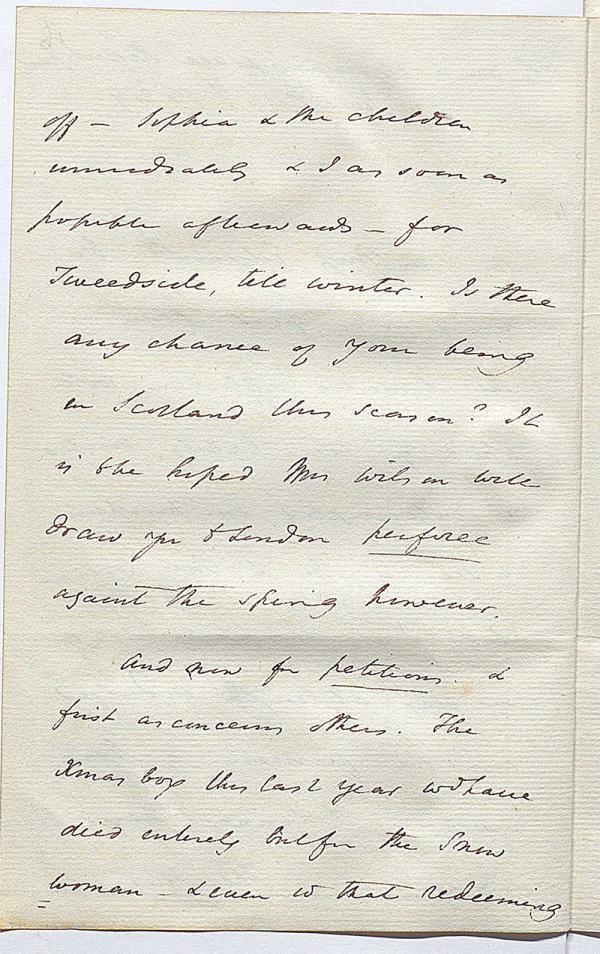 off – Sophia & the children
immediately & I as soon as
possible afterwards – for
Tweedside, till winter. Is there
any chance of your being
in Scotland this season? It
is to be hoped Mrs Wilson will
draw you to London perforce
against the spring however.
And now for petitions. &
first as concerns others. The
Xmas box this last year wd have
died entirely but for the Snow
woman – & even w that redeeming